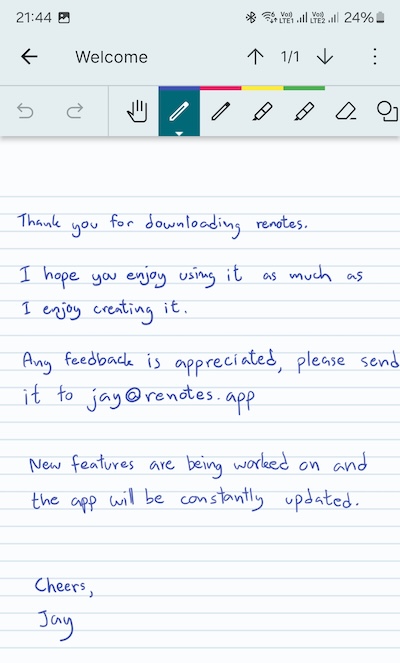 21:44 Vo) LTE1 Vo) LTE2 24%
Welcome 1/1
Thank you for downloading renotes.
I hope you enjoy using it as much as
I enjoy creating it.
Any feedback is appreciated, please send
it to jay@renotes.app
New features are being worked on and
the app will be constantly updated.
Cheers,
Jay